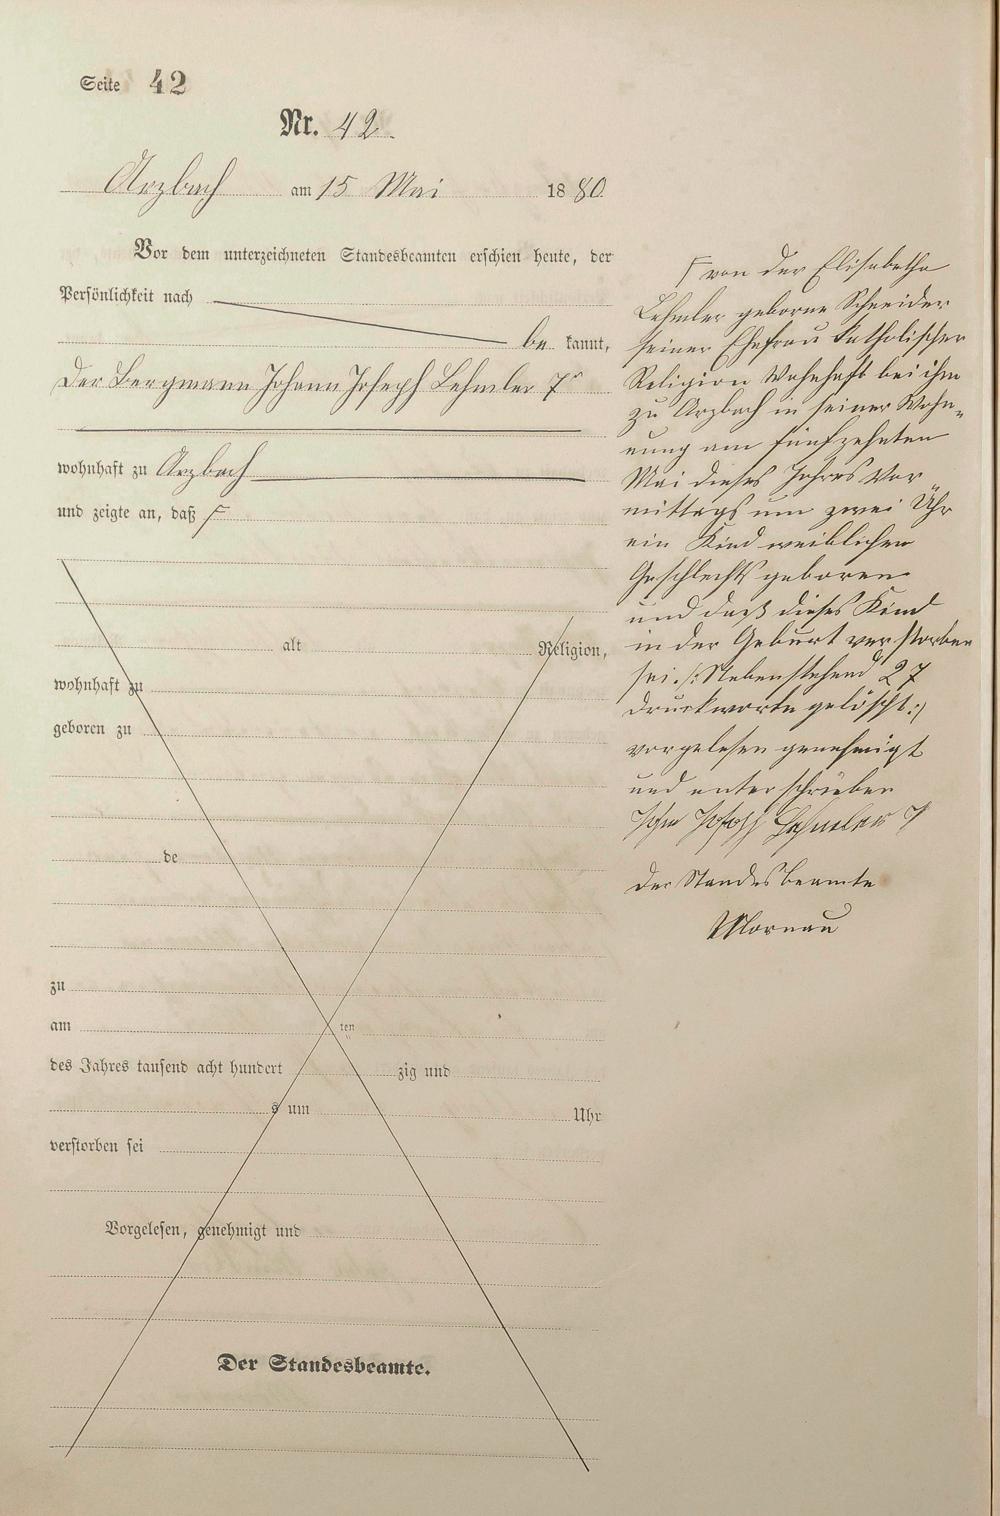 Seite 42
Nr. 42.
Arzbach am 15 Mai 1880
Vor dem unterzeichneten Standesbeamten erschien heute, der
Persönlichkeit nach
be kannt,
der Bergmann Johann Joseph Lehmler 7r
wohnhaft zu Arzbach
und zeigte an, daß Γ
alt Religion,
wohnhaft zu
geboren zu
de
zu
am ten
des Jahres tausend acht hundert zig und
s um Uhr
verstorben sei
Vorgelesen, genehmigt und
Der Standesbeamte.
Γ von der Elisabetha
Lehmler geborne Schneider
seiner Ehefrau Katholischer
Religion Wohnhaft bei ihm
zu Arzbach in seiner Wohn„
nung am fünfzehnten
Mai dieses Jahres Vor
mittags um zwei Uhr
ein Kind weiblichen
Geschlechts geboren
und daß dieses Kind
in der Geburt verstorben
sei. /: Nebenstehend 27
Druckworte gelöscht :/
vorgelesen genehmigt
und unterschrieben
Johann Joseph Lehmler 7
Der Standesbeamte
Mornau